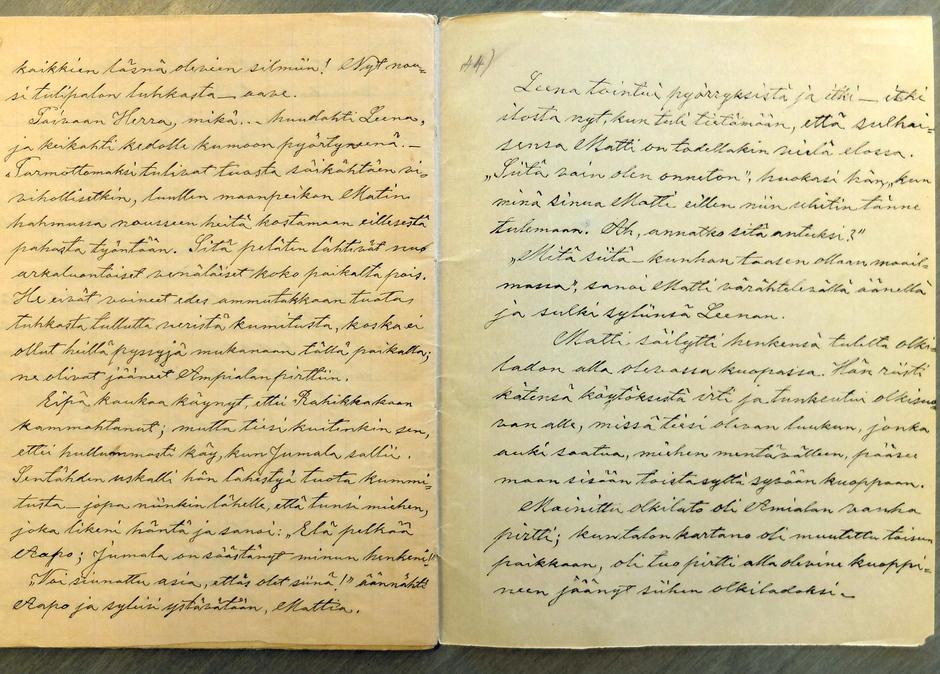 kaikkien läsnä olevien silmiin! Nyt nou-
si tulipalon tuhkasta — aave.
Taivaan Herra, mikä... huudahti Leena,
ja keikahti kedolle kumoon pyörtyneenä. —
Tarmottomaksi tulivat tuosta säikähtäen vi-
vihollisetkin, luullen maanpeikon Matin
hahmussa nousseen heitä kostamaan eillisestä
pahasta työntään. Sitä peläten lähtivät nuo
arkaluontoiset venäläiset koko paikalta pois.
He eivät voineet edes ammutakkaan tuota,
tuhkasta tullutta veristä kumitusta, koska ei
ollut heillä pyssyjä mukanaan tällä paikalla;
ne olivat jääneet Ampialan pirttiin.
Eipä kaukaa käynyt, ettei Rahikkakaan
kammahtanut; mutta tiesi kuitenkin sen,
ettei hullummasti käy, kun Jumala sallii.
Sentähden uskalti hän lähestyä tuota kummi-
tusta — jopa niinkin lähelle, että tunsi miehen,
joka likeni häntä ja sanoi: „Elä pelkää
Aapo; Jumala on säästänyt minun henkeni!"
„Voi siunattu asia, ettäs olet siinä!" äännähti
Aapo ja syleili ystävätään, Mattia.
44)
Leena tointui pyörryksistä ja itki — itki
ilosta nyt kun tuli tietämään, että sulhai-
sensa Matti on todellakin vielä elossa.
„Siitä vain olen onneton", huokasi hän, „kun
minä sinua Matti eillen niin usutin tänne
tulemaan. Oh, annatko sitä anteiksi?"
„Mitä siitä — kunhan taasen ollaan maail-
massa", sanoi Matti värähtelevällä äänellä
ja sulki syliinsä Leenan.
Matti säilytti henkensä tulelta olki-
ladon alla olevassa kuopassa. Hän riisti
kätensä köytöksistä irti ja tunkeutui olkisuo-
van alle, missä tiesi olevan luukun, jonka
auki saatua, miehen mentävälleen, pääsee
maan sisään toista syltä syvään kuoppaan.
Mainittu olkilato oli Amialan vanha
pirtti; kun talon kartano oli muutettu toiseen
paikkaan, oli tuo pirtti alla olevine kuoppi-
neen jäänyt siihen olkiladoksi —